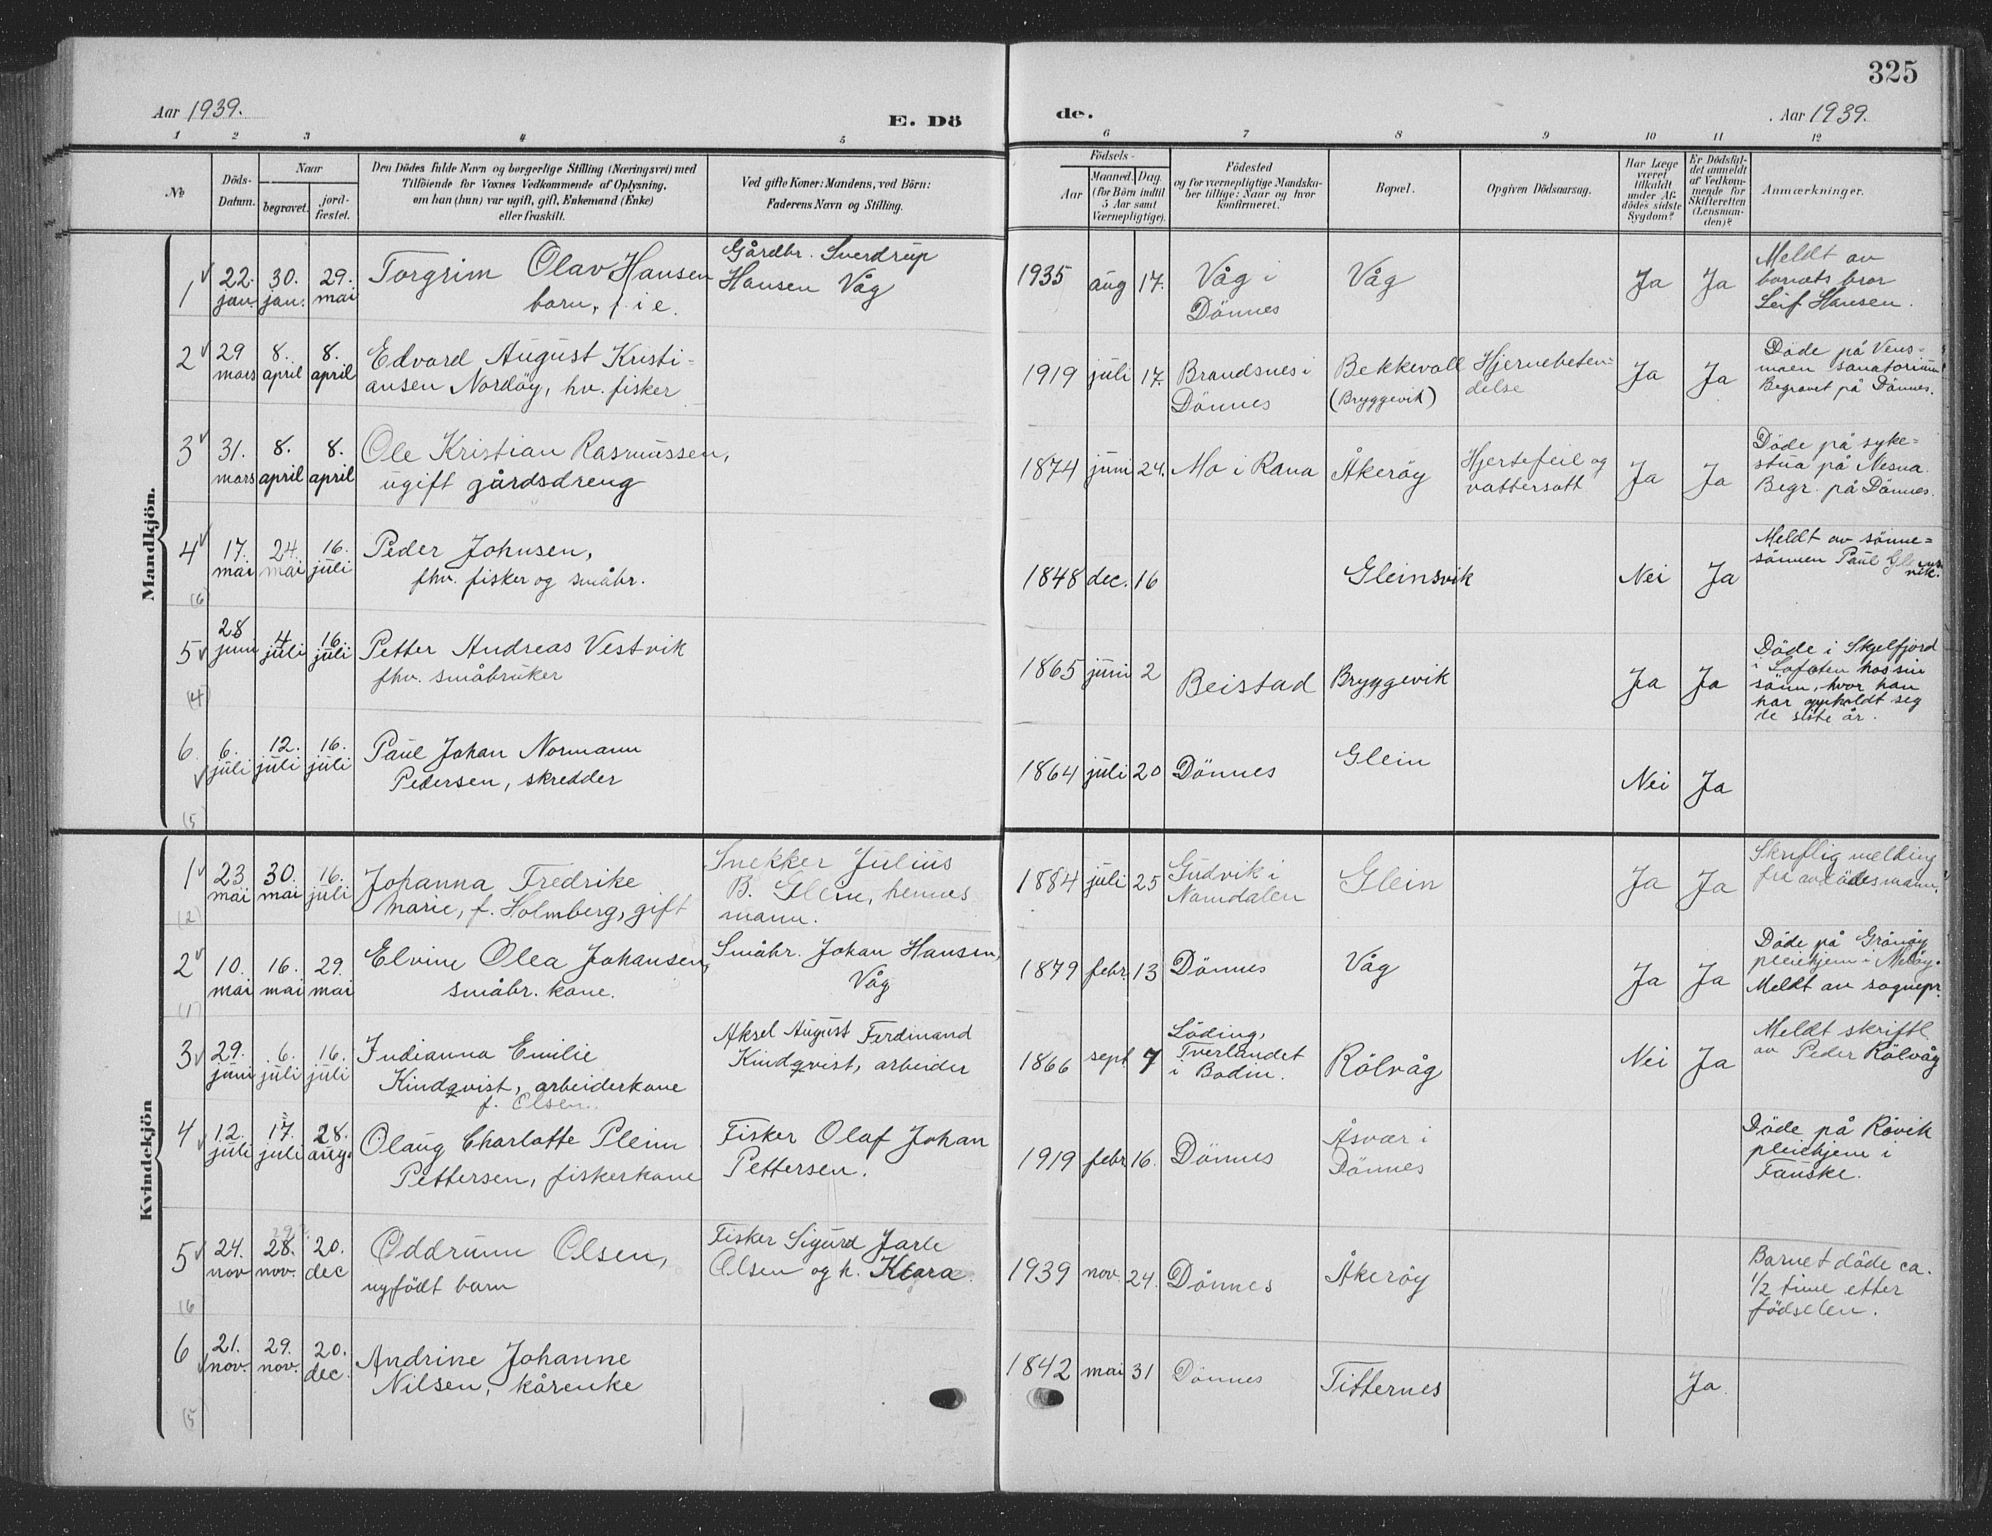 325
Aar 1939.
E. Dö
de.
Aar 1939.
1 2 3 4 5 6 7 8 9 10 11 12
No
Döds-
Datum.
Naar
begravet.
jord-
fæstet.
Den Dödes fulde Navn og borgerlige Stilling (Næringsvei) med
Tilföiende for Voxnes Vedkommende af Oplysning,
om han (hun) var ugift, gift, Enkemand (Enke)
eller fraskilt.
Ved gifte Koner: Mandens, ved Börn:
Faderens Navn og Stilling.
Födsels-
Aar
Maaned. Dag.
(for Börn indtil
5 Aar samt
Værnepligtige).
Födested
og for værnepligtige Mandska-
ber tillige: Naar og hvor
konfirmeret.
Bopæl.
Opgiven Dödsaarsag.
Har Læge
været
tilkaldt
under Af-
dödes sidste
Sygdom?
Er Dödsfal-
det anmeldt
af Vedkom-
mende for
Skifteretten
(Lensman-
den)?
Anmærkninger.
Mandkjön.
1
22.
jan.
30.
jan.
29.
mai
Torgrim Olav Hansen
barn, f. i e.
Gårdbr. Sverdrup
Hansen Våg
1935 aug 17.
Våg i
Dönnes
Våg
Ja
Ja
Meldt av
barnets bror
Leif Hansen.
2
29
mars
8.
april
8.
april
Edvard August Kristi-
ansen Nordöy, hv. fisker
1919 juli 17.
Brandsnes i
Dönnes
Bekkevoll
(Bryggevik)
Hjernebeten-
delse
Ja
Ja
Döde på Vens-
moen sanatorium
Begravet på Dönnes.
3
31.
mars
8.
april
8.
april
Ole Kristian Rasmussen,
ugift gårdsdreng
1874 juni 24.
Mo i Rana
Åkeröy
Hjertefeil og
vattersott
Ja
Ja
Döde på syke-
stua på Nesna.
Begr. på Dönnes.
4
(6
17.
mai
24.
mai
16.
juli
Peder Johnsen,
fhv. fisker og småbr.
1848 dec. 16
Gleinsvik
Nei
Ja
Meldt av sönne-
sönnen Paul Gleins
vik.
5
(4
28
juni
4
juli
16.
juli
Petter Andreas Vestvik
fhv. småbruker
1865 juni 2
Beistad
Bryggevik
Ja
Ja
Döde i Skjelfjord
i Lofoten hos sin
sönn, hvor han
har oppholdt seg
de siste år.
6.
(5
6.
juli
12.
juli
16.
juli
Paul Johan Normann
Pedersen, skredder
1864 juli 20
Dönnes
Glein
Nei
Ja
Kvindekjön
1
(2)
23
mai
30.
mai
16.
juli
Johanna Fredrike
Marie, f. Holmberg, gift
Snekker Julius
B. Glein, hennes
mann.
1884 juli 25
Gudvik i
Namdalen
Glein
Ja
Ja
Skriftlig melding
fra avdödes mann.
2
(1)
10.
mai
16.
mai
29.
mai
Elvine Olea Johansen,
småbr. kone.
Småbr. Johan Hansen,
Våg
1879 febr. 13
Dönnes
Våg
Ja
Ja
Döde på Grönöy
pleiehjem i Melöy.
Meldt av sognepr.
3
29.
juni
6.
juli
16.
juli
Indianna Emilie
Kindqvist, arbeiderkone
f. Elsen.
Aksel August Ferdinand
Kindqvist, arbeider
1866 sept 7
Löding,
Tverlandet
i Bodin.
Rölvåg
Nei
Ja
Meldt skriftl
av Peder Rölvåg
4
12.
juli
17.
juli
28.
aug.
Olaug Charlotte Pleim
Pettersen, fiskerkone
Fisker Olaf Johan
Pettersen.
1919 febr. 16.
Dönnes
Åsvær i
Dönnes
Döde på Rövik
pleiehjem i
Fauske.
5
(6
24.
nov
28.
nov.
20.
dec
Oddrunn Olsen,
nyfödt barn
Fisker Sigurd Jarle
Olsen og h. Klara.
1939 nov. 24.
Dönnes
Åkeröy
Barnet döde ca.
1/2 time etter
födselen.
6
(5
21.
nov.
29.
nov.
20.
dec.
Andrine Johanne
Nilsen, kårenke
1842 mai 31
Dönnes
Titternes
Ja.